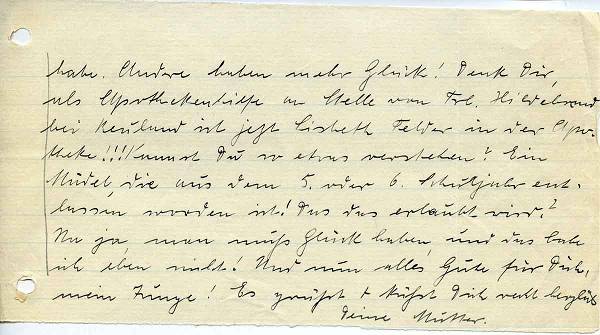 habe. Andere haben mehr Glück! Denk Dir,
als Apothekenhilfe an Stelle von Frl. Hildebrand
bei Neuland ist jetzt Lisbeth Felder in der Apo-
theke!!! Kannst Du so etwas verstehen? Ein
Mädel, die aus dem 5. oder 6. Schuljahr ent-
lassen worden ist! Das das erlaubt wird?
Na ja, man muß Glück haben, und das habe
ich eben nicht! Und nun alles Gute für Dich,
mein Junge! Es grüßt + küßt Dich recht herzlich
Deine Mutter.